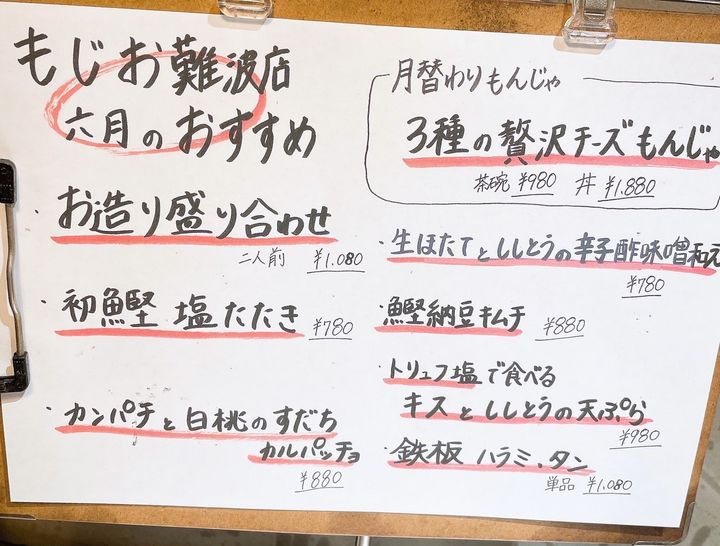 もじお難波店
六月のおすすめ
・お造り盛り合わせ
二人前 ¥1.080
・初鰹 塩たたき
¥780
・カンパチと白桃のすだち
カルパッチョ
¥880
月替わりもんじゃ
3種の贅沢チーズもんじゃ
茶碗 ¥980 丼 ¥1.880
・生ほたてとししとうの辛子酢味噌和え
¥780
・鰹納豆キムチ ¥880
・トリュフ塩で食べる
キスとししとうの天ぷら
¥980
・鉄板 ハラミ、タン
単品 ¥1.080